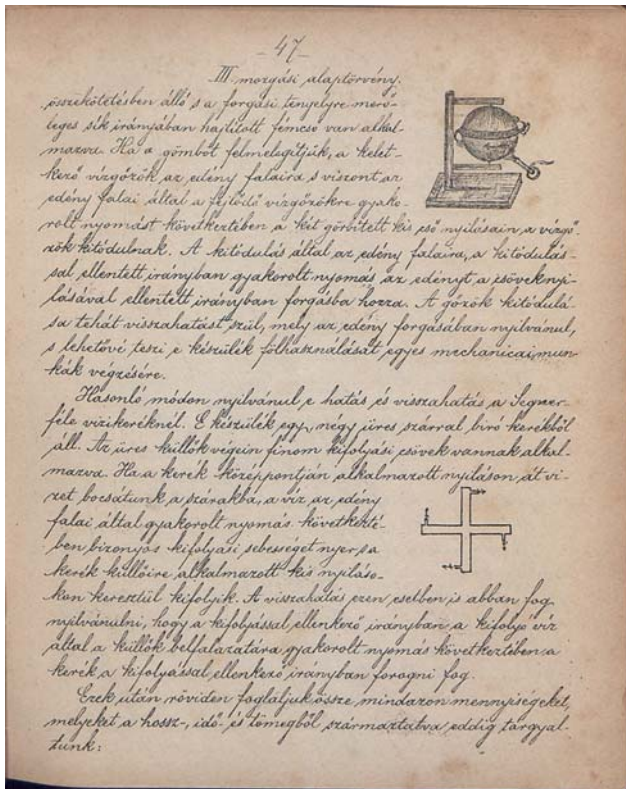 - 47 -
III. mozgási alaptörvény.
összeköttetésben álló s a forgási tengelyre merő-
leges sík irányában hajlított fémcső van alkal-
mazva. Ha a gömböt felmelegítjük, a kelet-
kező vízgőzök az edény falaira s viszont az
edény falai által a fejlődő vízgőzökre gyako-
rolt nyomást következtében a két görbített kis cső nyilásain a vízgő-
zök kitódulnak. A kitódulás által az edény falaira, a kitódulás-
sal ellentett irányban gyakorolt nyomás az edényt a csövek nyi-
lásával ellentett irányban forgásba hozza. A gőzök kitódulá-
sa tehát visszahatást szül, mely az edény forgásában nyilvánul,
s lehetővé teszi e készülék fölhasználását egyes mechanicai mun-
kák végzésére.
Hasonló módon nyilvánul e hatás és visszahatás a Segner-
féle vizikeréknél. E készülék egy, négy üres szárral biró kerékből
áll. Az üres küllők végein finom kifolyási csövek vannak alkal-
mazva. Ha a kerék középpontján alkalmazott nyiláson át vi-
zet bocsátunk a szárakba, a víz az edény
falai által gyakorolt nyomás következté-
ben bizonyos kifolyási sebességet nyer s a
kerék küllőire alkalmazott kis nyiláso-
kon keresztül kifolyik. A visszahatás ezen esetben is abban fog
nyilvánulni, hogy a kifolyással ellenkező irányban a kifolyó víz
által a küllők belfalazatára gyakorolt nyomás következtében a
kerék a kifolyással ellenkező irányban forogni fog.
Ezek után röviden foglaljuk össze mindazon mennyiségeket,
melyeket a hossz-, idő- és tömegből származtatva eddig tárgyal-
tunk: